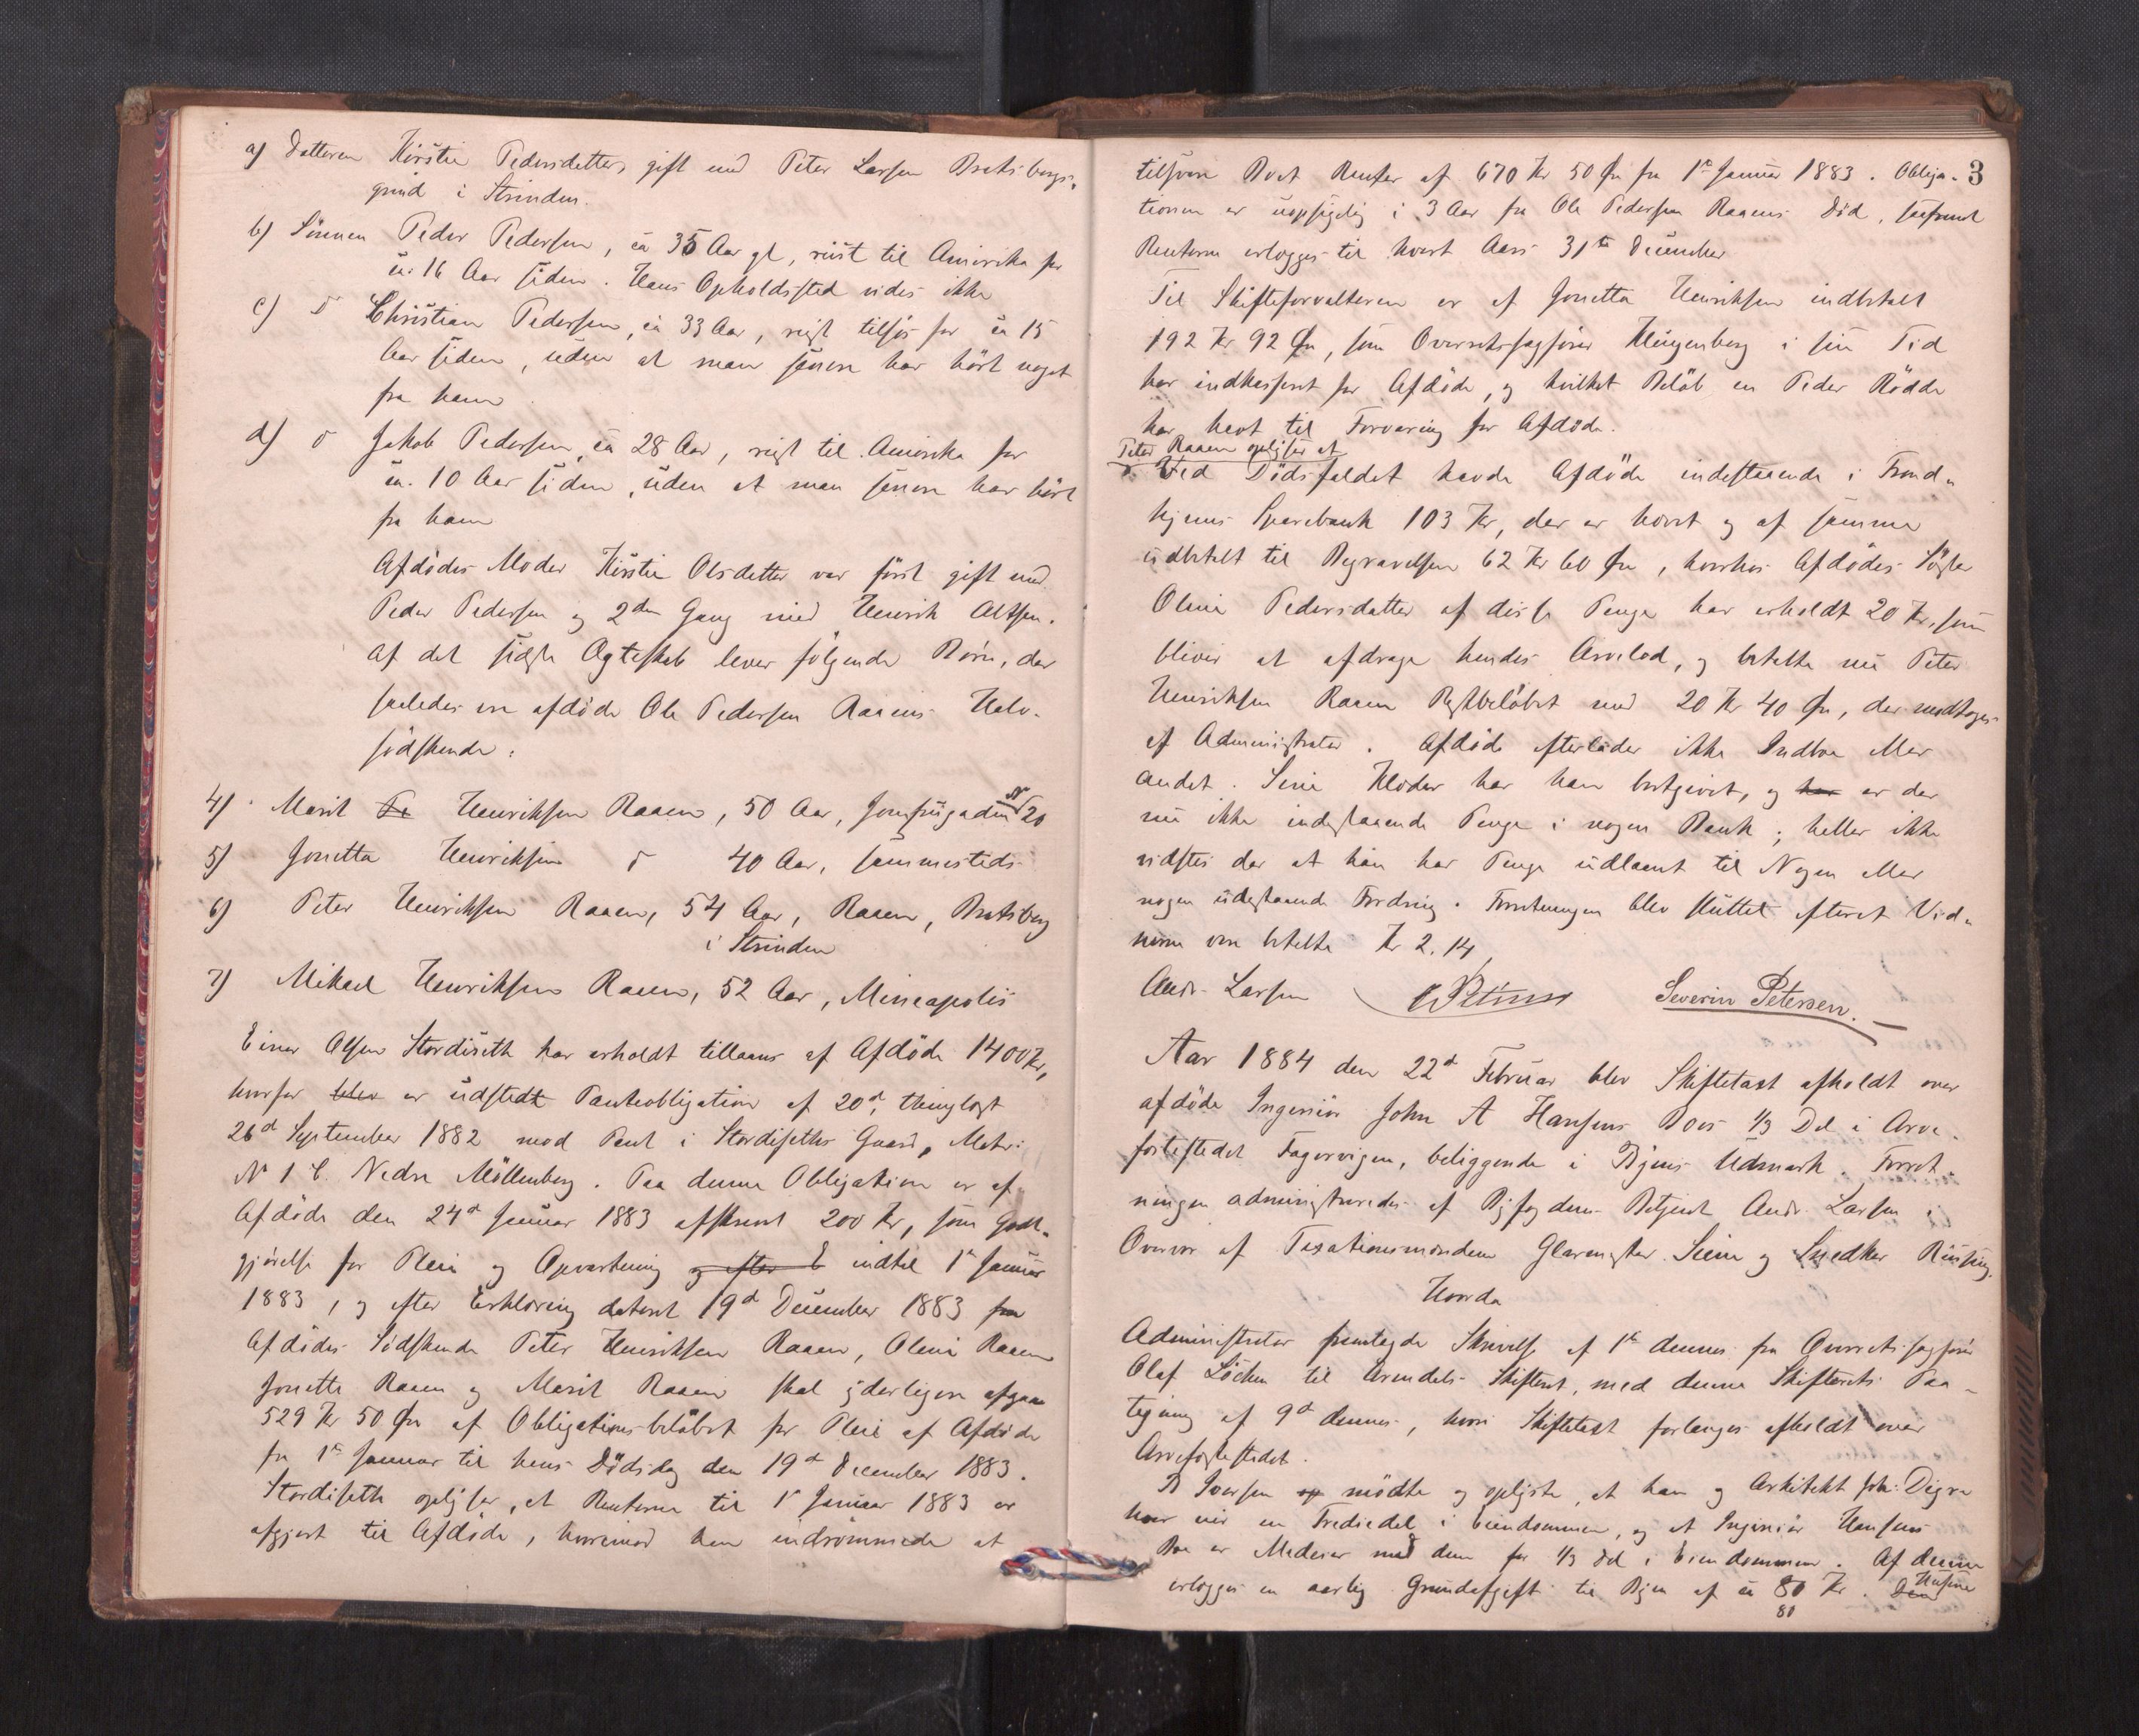 a) Datteren Kirstie Pedersdatter, gift med Peter Larsen Bratsbergs-
grind i Strinden.
b) Sönnen Peder Pedersen, ca 35 Aar gl, reist til Amerika for
ca. 16 Aar siden. Hans Opholdssted vides ikke
c) D Christian Pedersen, ca 33 Aar, reist tilsjøs for ca 15
Aar siden, uden at man senere har hört noget
fra ham
d) D Jakob Pedersen, ca 28 Aar, reist til Amerika for
ca. 10 Aar siden, uden at man senere har hört
fra ham
Afdödes Moder Kirstie Olsdatter var först gift med
Peder Pedersen og 2den Gang med Henrik Olsen.
Af det sidste Ægteskab lever fölgende Börn, der
saaledes ere afdöde Ole Pedersen Raaens Halv-
södskende:
4) Marit Pe Henriksen Raaen, 50 Aar, Jomfrugaden N 20
5) Jonetta Henriksen D 40 Aar, sammesteds
6) Peter Henriksen Raaen, 54 Aar, Raaen, Bratsberg
i Strinden
7) Mikael Henriksen Raaen, 52 Aar, Mineapolis
Einar Olsen Stordiseth har erholdt tillaans af Afdöde 1400 Kr,
hvorfor blev er udstedt Panteobligation af 20d, thinglæst
26d September 1882 mod Pant i Stordiseths Gaard, Matr:
N 1 C. Nedre Möllenberg. Paa denne Obligation er af
Afdöde den 24d Januar 1883 afskrevet 200 Kr, som Godt-
gjörelse for Pleie og Opvartning og efter E indtil 1e Januar
1883, og efter Erklæring dateret 19d December 1883 fra
Afdödes Södskende Peter Henriksen Raaen, Olene Raaen
Jonetta Raaen og Marit Raaen skal yderligere afgaa
529 Kr 50 Øre af Obligationsbelöbet for Pleie af Afdöde
fra 1e Januar til hans Dödsdag den 19d December 1883.
Stordiseth oplyser, at Renterne til 1e Januar 1883 er
afgjort til Afdöde, hvorimod han indrömmede at
3
tilsvare Boet Renter af 670 Kr 50 Øre fra 1e Januar 1883. Obliga-
tionen er uopsigelig i 3 Aar fra Ole Pedersen Raaens Död, saafremt
Renterne erlægges til hvert Aars 31te December
Til Skifteforvalteren er af Jonetta Henriksen indbetalt
192 Kr 92 Øre, som Overretssagförer Klingenberg i sin Tid
har indkasseret for Afdöde, og hvilket Belöb en Peder Rödde
har havt til Forvaring for Afdöde.
Peter Raaen oplyser at
Ved Dödsfaldet havde Afdöde indestaaende i Trond-
hjems Sparebank 103 Kr, der er hævet og af samme
udbetalt til Begravelsen 62 Kr 60 Øre, hvorhos Afdödes Söster
Oline Pedersdatter af disse Penge har erholdt 20 Kr, som
bliver at afdrage hendes Arvelod, og betalte nu Peter
Henriksen Raaen Restbelöbet med 20 Kr 40 Øre, der modtoges
af Administrator. Afdöde efterlader ikke Indbo eller
andet. Sine Klæder har han bortgivet, og har er der
nu ikke indestaaende Penge i nogen Bank; heller ikke
vidstes der at han har Penge udlaant til Nogen eller
nogen udestaaende Fordring. Forretningen blev sluttet efterat Vid-
nerne vare betalte Kr 2.14
Andr. Larsen Severin Petersen.
Aar 1884 den 22d Februar blev Skiftetaxt afholdt over
afdöde Ingeniör John A Hansens Boes 1/3 Del i Arve-
festestedet Fagervigen, beliggende i Byens Udmark. Forret-
ningen administreredes af Byfogdens Betjent Andr. Larsen i
Overvær af Taxationsmændene Glarmester Seim og Snedker Rinsing.
Hvorda
Administrator fremlagde Skrivelse af 1e dennes fra Overretssagförer
Olaf Löchen til Arendals Skifteret, med denne Skifterets Paa-
tegning af 9d dennes, hvori Skiftetaxt forlanges afholdt over
Arvefestestedet.
B Iversen op mödte og oplyste, at han og Arkitekt Joh: Digre
hver eier en Trediedel i Eiendommen, og at Ingeniör Hansens
Bo er Medeier med dem for 1/3 Del i Eiendommen. Af denne
erlægges en aarlig Grundafgift til Byen af ca 80 Kr. Den Husene
80